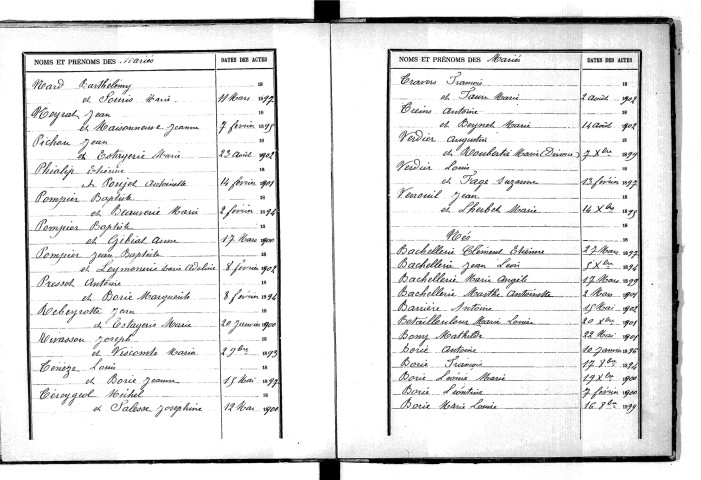 NOMS ET PRÉNOMS DES Mariés DATES DES ACTES
18
Nard Barthélémy
et Souris Marie 11 Mars 1897
Neyrat Jean 18
et Maisonneuve Jeanne 7 février 1895
Pichon Jean 18
et Estagerie Marie 23 Août 1902
Phialip Etienne 18
et Poujet Antoinette 14 février 1901
Pompier Baptiste 18
et Beauserie Marie 2 février 1894
Pompier Baptiste 18
et Gibiat Anne 17 Mars 1900
Pompier Jean Baptiste 18
et Leymonerie Marie Adeline 8 février 1902
Pressot Antoine 18
et Borie Marguerite 8 février 1894
Rebeyrotte Jean 18
et Estagerie Marie 20 janvier 1900
Revasson Joseph 18
et Viscomte Maria 2 9bre 1893
Teneze Louis 18
et Borie Jeanne 15 Mai 1897
Téreygeol Michel 18
et Salesse Joséphine 12 Mai 1900
NOMS ET PRÉNOMS DES Mariés DATES DES ACTES
Travers François 18
et Faure Marie 2 août 1902
Treins Antoine 18
et Beynet Marie 14 août 1902
Verdier Augustin 18
et Roubertie Marie (Divorce) 7 Xbre 1899
Verdier Louis 18
et Fage Suzanne 13 février 1897
Verrouil Jean 18
et Lherbet Marie 14 Xbre 1895
18
Nés 18
Bachellerie Clément Etienne 27 Mars 1897
Bachellerie Jean Léon 5 Xbre 1894
Bachellerie Marie Angèle 17 Mars 1899
Bachellerie Marthe Antoinette 2 Mars 1901
Barrière Antoine 15 Mai 1902
Betaillouloux Marie Louise 20 Xbre 1901
Bomy Mathilde 22 Mai 1901
Borie Antoine 10 Janvier 1896
Borie François 17 8bre 1894
Borie Léonie Marie 19 Xbre 1900
Borie Léontine 7 février 1900
Borie Marie Louise 16 8bre 1899